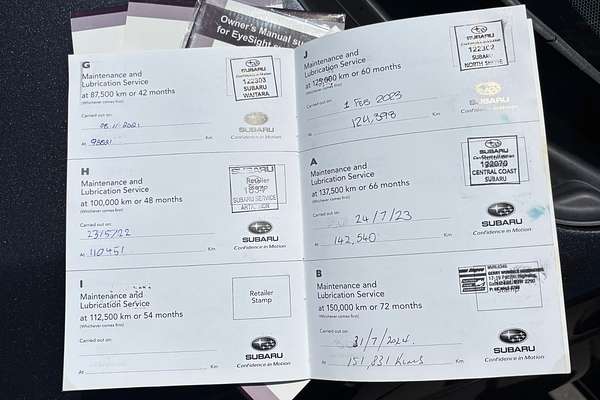 Owner's Manual su
for EyeSight
G
Maintenance and
Lubrication Service
at 87,500 km or 42 months
(Whichever comes first)
Carried out on:
At
Km
SUBARU
122303
SUBARU
WAITARA
Confidence in Motion
H
Maintenance and
Lubrication Service
at 100,000 km or 48 months
(Whichever comes first)
Carried out on:
23/5/22
At 110451
Km
Retailer
Stamp
SUBARU SERVICE
SUBARU
Confidence in Motion
I
Maintenance and
Lubrication Service
at 112,500 km or 54 months
(Whichever comes first)
Carried out on:
At
Km
Retailer
Stamp
SUBARU
Confidence in Motion
J
Maintenance and
Lubrication Service
at 125,000 km or 60 months
(Whichever comes first)
Carried out on:
1 FEB 2023
At 124,398
Km
SUBARU
122302
SUBARU
NORTH SHORE
Confidence in Motion
A
Maintenance and
Lubrication Service
at 137,500 km or 66 months
(Whichever comes first)
Carried out on:
24/7/23
At 142,540
Km
SUBARU
122070
CENTRAL COAST
SUBARU
SUBARU
Confidence in Motion
B
Maintenance and
Lubrication Service
at 150,000 km or 72 months
(Whichever comes first)
Carried out on:
31/7/2024
At 151,831 Kms
Km
Stamp
SUBARU
Confidence in Motion